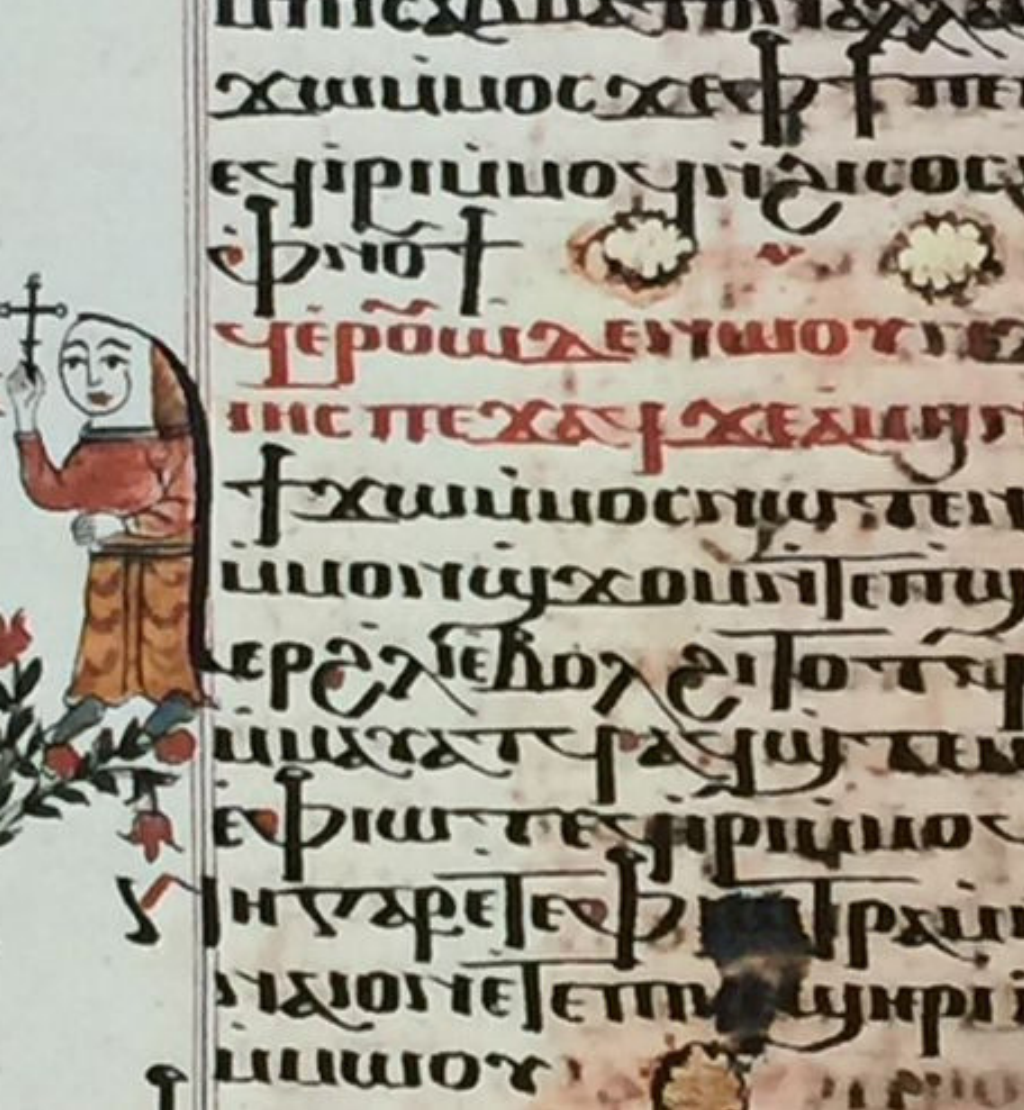 ϫⲱⲙⲙⲟⲥ ϫⲉ ⲫϯ ⲡⲉ
ⲉϥⲓⲣⲓ ⲙⲙⲟϥ ⲛϩⲓⲥⲟⲥ
ⲫⲛⲟⲩϯ
ⲁϥⲉⲣⲟⲩⲱ ⲇⲉ ⲛⲱⲟⲩ ⲛϫⲉ
ⲓⲏⲥ ⲡⲉϫⲁϥ ϫⲉ ⲁⲙⲏⲛ
ϯϫⲱ ⲙⲙⲟⲥ ⲛⲱⲧⲉⲛ
ⲙⲙⲟⲛ ϣϫⲟⲙ ⲛⲧⲉ ⲡϣ
ⲉⲣ ϩⲗⲓ ⲉⲃⲟⲗ ϩⲓⲧⲟⲧϥ
ⲙⲙⲁⲩⲁⲧϥ ⲁϥϣⲧⲉⲙ
ⲉⲫⲓⲱⲧ ⲉϥⲓⲣⲓ ⲙⲙⲟϥ
ⲛⲏ ⲅⲁⲣ ⲉⲧⲉ ⲫⲓⲱⲧ ⲣⲁ ⲙ
ⲛⲁⲓ ⲟⲛ ⲉⲧⲉ ⲡ ϣⲏⲣⲓ
ⲙⲙⲱⲟⲩ